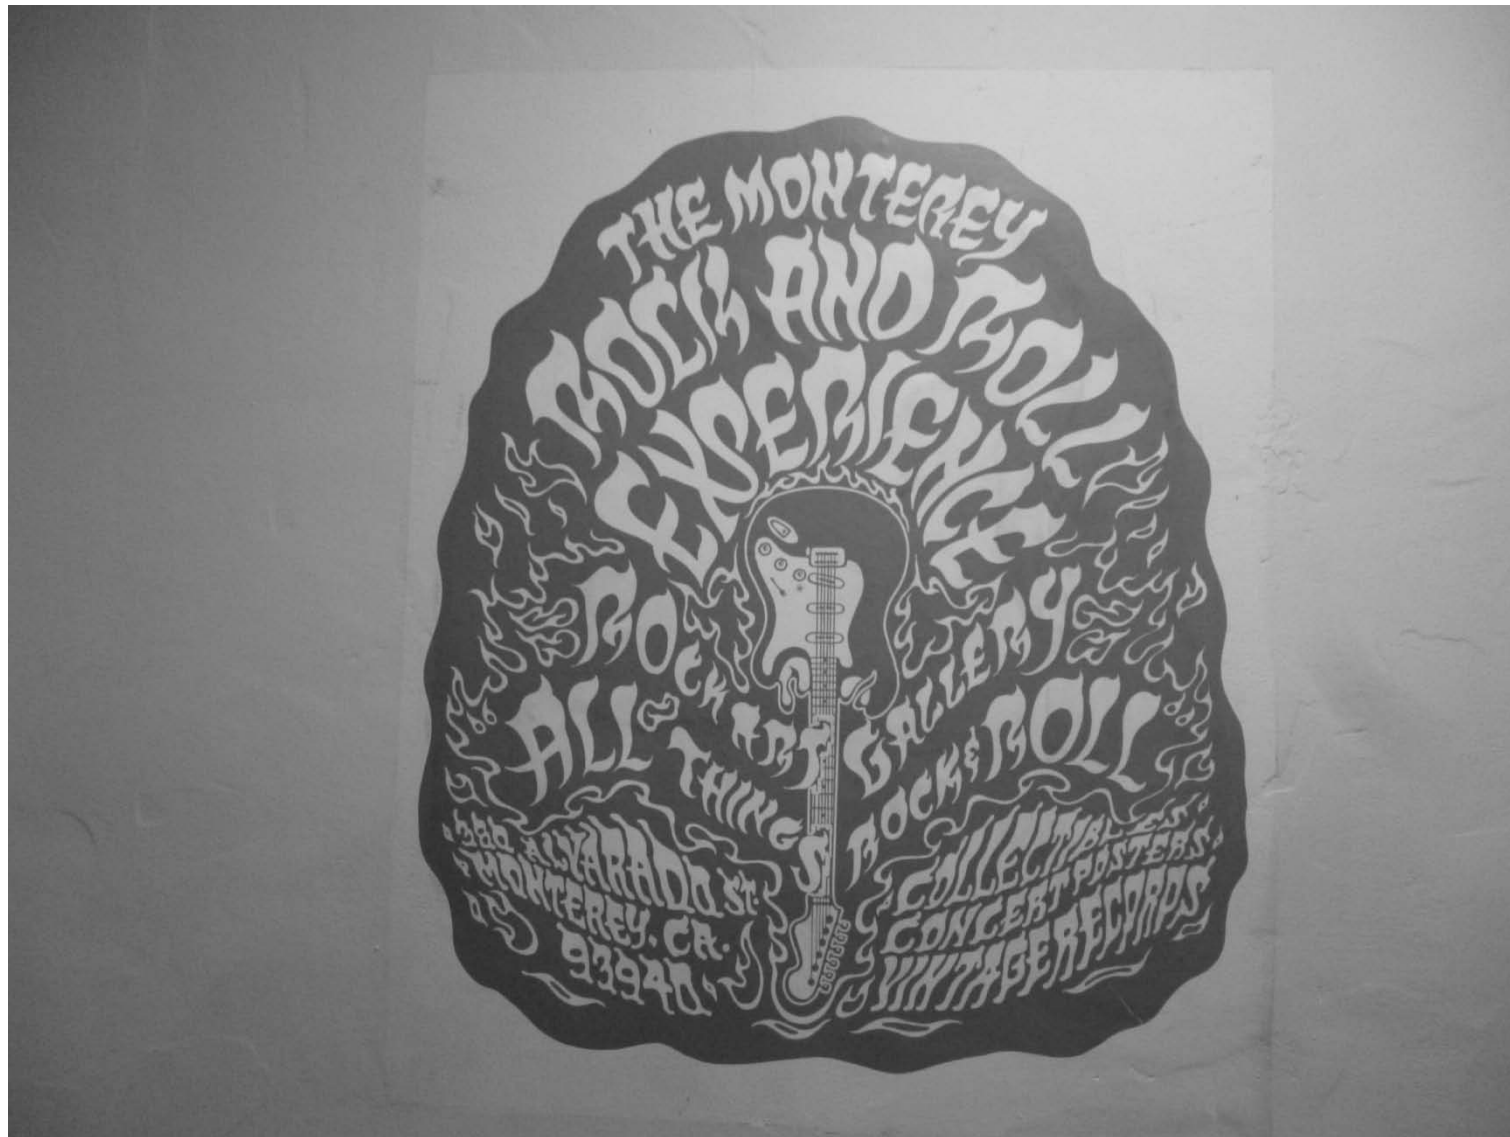 THE MONTEREY
ROCK AND ROLL
EXPERIENCE
ROCK ART GALLERY
ALL THINGS ROCK & ROLL
380 ALVARADO ST.
MONTEREY. CA.
93940.
COLLECTIBLES
CONCERT POSTERS
VINTAGE RECORDS